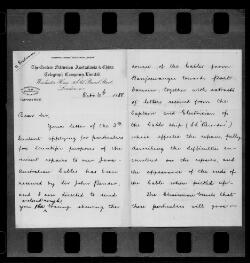 The Eastern Extension Australasia & China
Telegraph Company, Limited
Winchester House, 50 Old Broad Street,
London
Octr. 6th 1888
Dear Sir,
Your letter of the 3rd
Instant applying for particulars
for scientific purposes of the
recent repairs to our Java-
Australian Cables has been
received by Sir John Pender,
and I am directed to send
you herewith tracing shewing the
course of the Cables from
Banjoewangie towards Port
Darwin together with extracts
of letters received from the
Captain and Electrician of
the Cable Ship (SS "Recorder")
which effected the repairs fully
describing the difficulties en-
countered on the repairs, and
the appearance of the ends of
the Cable when picked up.
The Chairman trusts that
these particulars will give